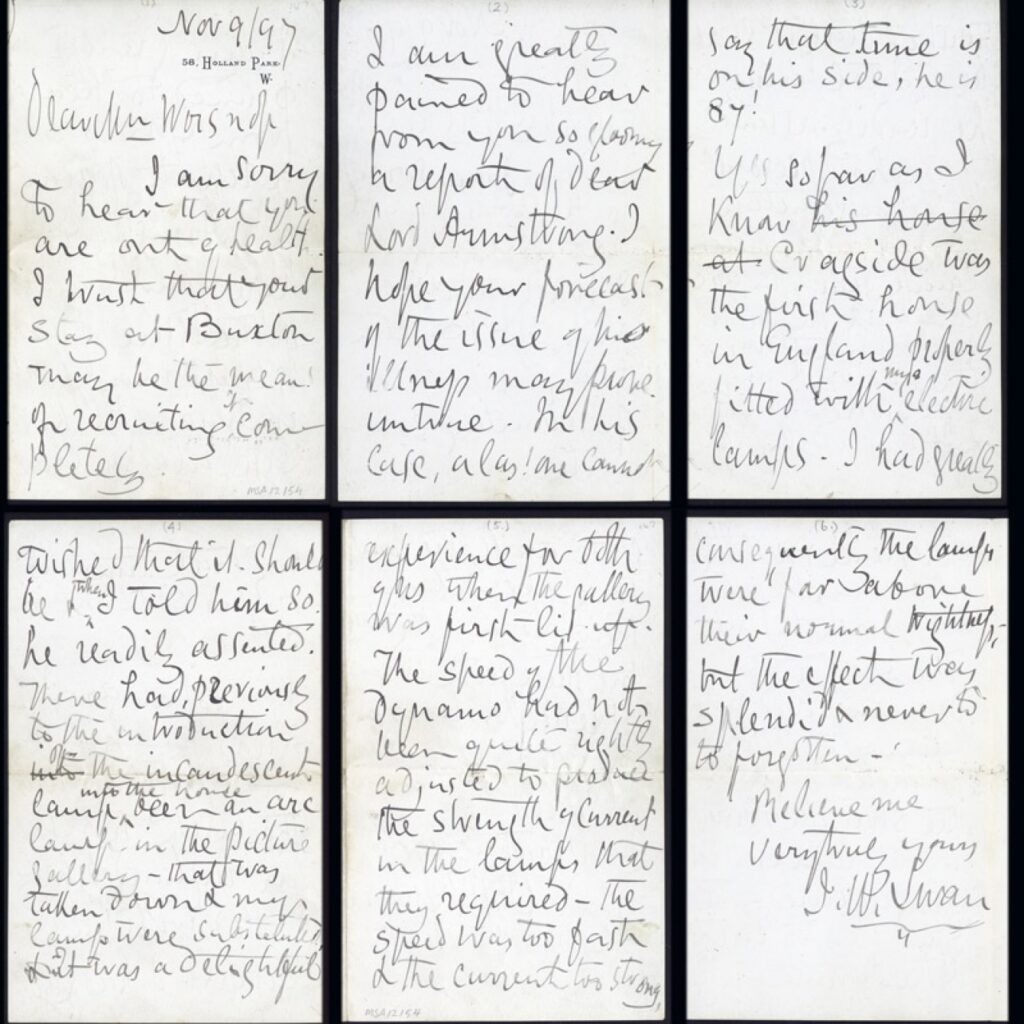 (1)
Nov 9/97
58, HOLLAND PARK,
W.
Dear Mr Worsnop
I am sorry
to hear that you
are out of health.
I trust that your
stay at Buxton
may be the means
of recruiting it com
pletely.
MSA12/54
(2)
I am greatly
pained to hear
from you so gloomy
a report of dear
Lord Armstrong. I
hope your forecast
of the issue of his
illness may prove
untrue. In his
case, alas! one cannot
(3)
say that time is
on his side, he is
87!
Yes so far as I
know his house
at Cragside was
the first house
in England properly
fitted with my electric
lamps. I had greatly
(4)
wished that it should
be & when I told him so
he readily assented.
There had, previously
to the introduction
into of the incandescent
lamp into the house been an arc
lamp in the picture
gallery – that was
taken down & my
lamps were substituted.
It was a delightful
(5)
experience for both
of us when the gallery
was first lit up.
The speed of the
Dynamo had not
been quite rightly
adjusted to produce
the strength of current
in the lamps that
they required – the
speed was too fast
& the current too strong,
MSA12/54
(6)
consequently the lamps
were far above
their normal brightness,
but the effect was
splendid & never to
to forgotten –
Believe me
Very truly yours
J. W. Swan